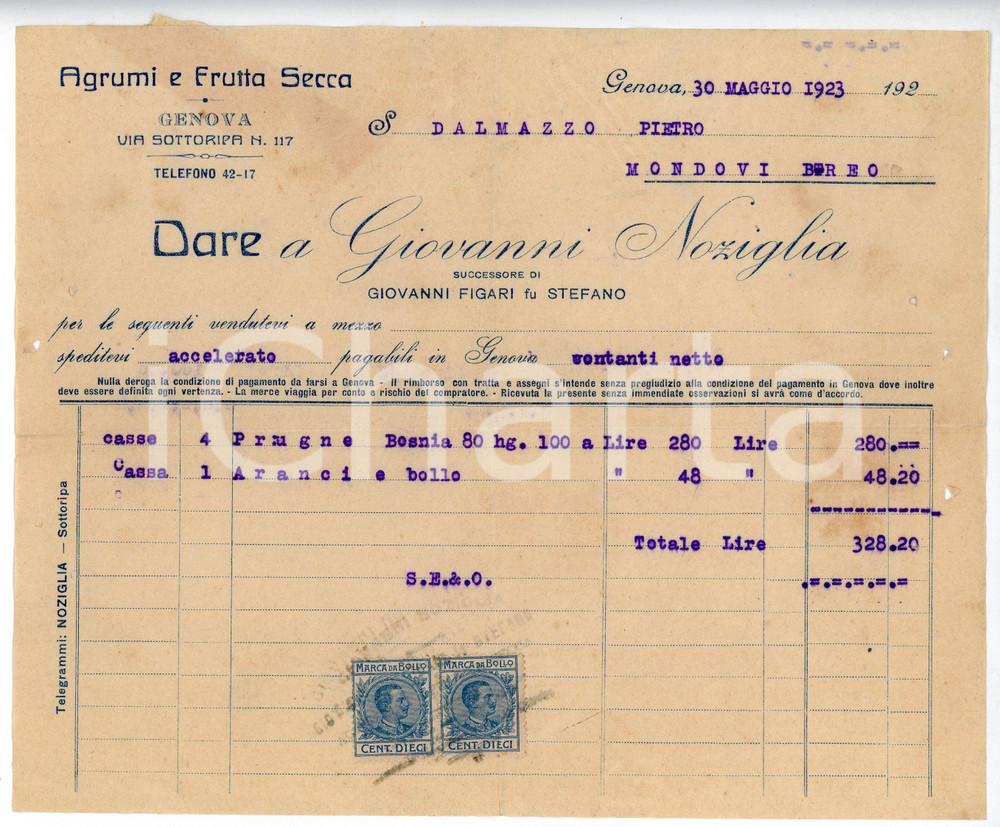 Agrumi e Frutta Secca
GENOVA
VIA SOTTORIPA N. 117
TELEFONO 42-17
Genova, 30 MAGGIO 1923 192
S DALMAZZO PIETRO
MONDOVI BREO
Dare a Giovanni Noziglia
SUCCESSORE DI
GIOVANNI FIGARI fu STEFANO
per le seguenti vendutevi a mezzo
speditevi accelerato pagabili in Genova contanti netto
Nulla deroga la condizione di pagamento da farsi a Genova - Il rimborso con tratta e assegni s'intende senza pregiudizio alla condizione del pagamento in Genova dove inoltre
deve essere definita ogni vertenza. - La merce viaggia per conto e rischio del compratore. - Ricevuta la presente senza immediate osservazioni si avrà come d'accordo.
casse 4 Prugne Bosnia 80 hg. 100 a Lire 280 Lire 280.==
Cassa 1 Aranci e bollo " 48 " 48.20
Totale Lire 328.20
S.E.&O.
.=.=.=.=.=
Telegrammi: NOZIGLIA — Sottoripa
MARCA DA BOLLO MARCA DA BOLLO
CENT. DIECI CENT. DIECI
iCharta